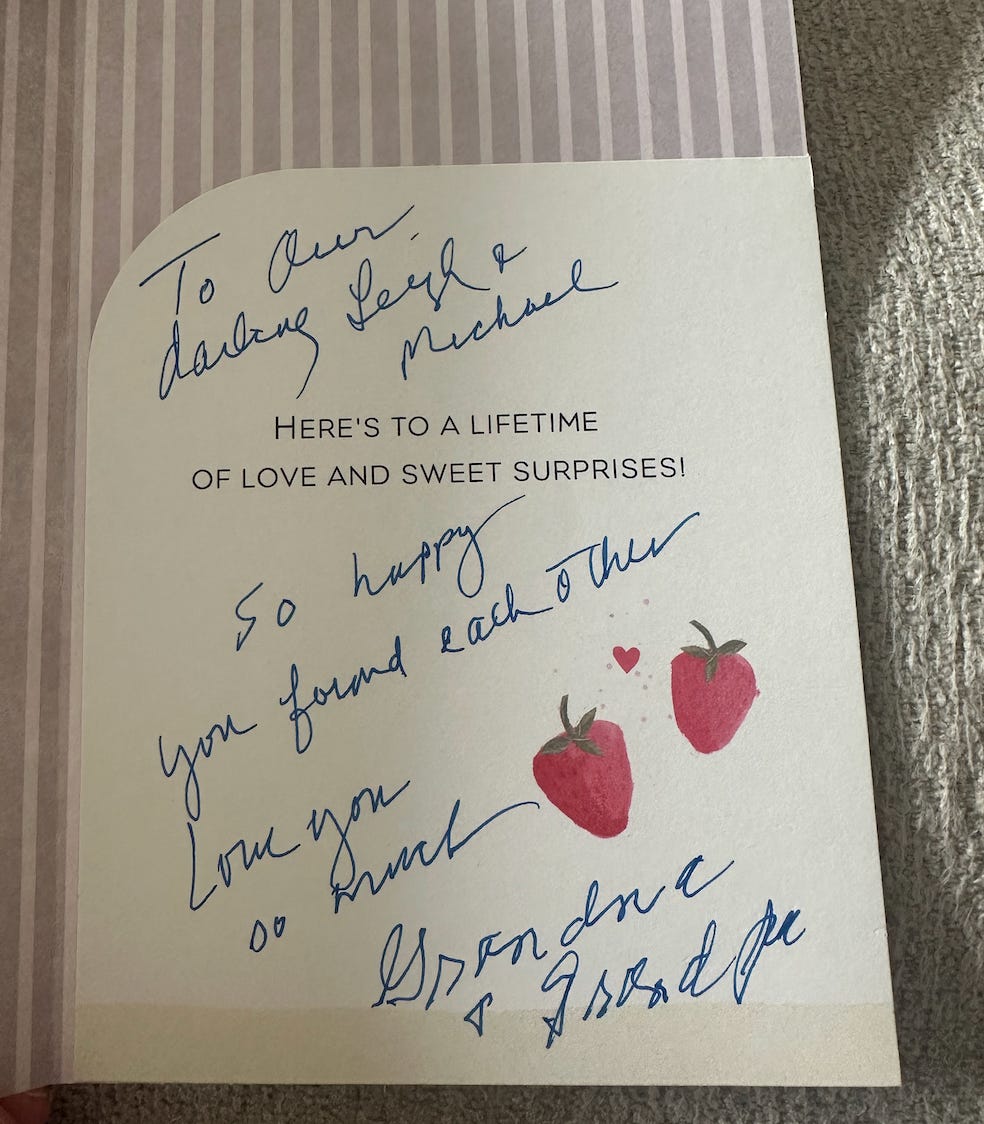 To Our
darling Leigh &
Michael
HERE'S TO A LIFETIME
OF LOVE AND SWEET SURPRISES!
So happy
you found each other
Love you
so much
Grandma
& Grandpa